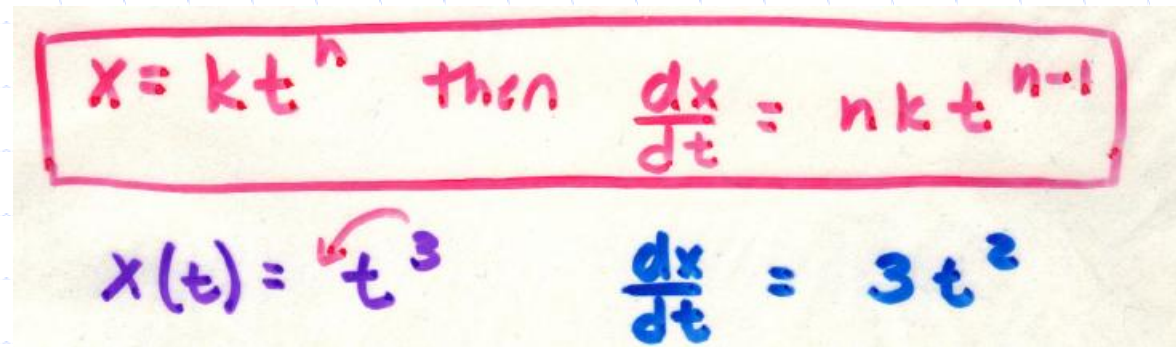 x = kt^n then dx/dt = nkt^(n-1)
x(t) = t^3 dx/dt = 3t^2